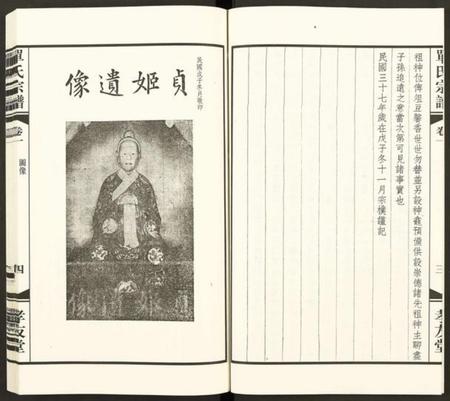 單氏宗譜
卷一
三
孝友堂
祖神位俾俎豆馨香世世勿替並另設神龕預備供設崇德諸先祖神主聊盡
子孫追遠之意當次第可見諸事實也
民國三十七年歲在戊子冬十一月宗樸謹記
民國戊子冬月敬印
貞姬遺像
單氏宗譜
卷一
圖像
四
孝友堂